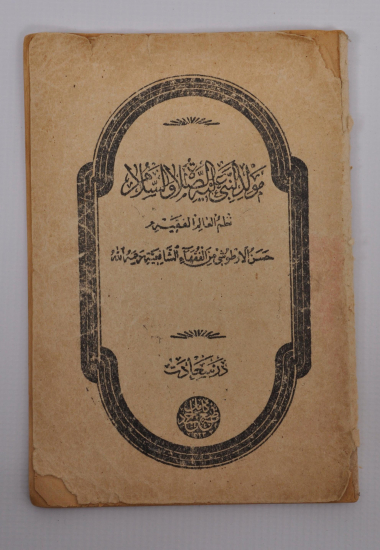 مولد النبي عليه الصلاة والسلام
نظم العالم الفقيه
حسن الارطوشي من الفقهاء الشافعية رحمه الله
در سعادت